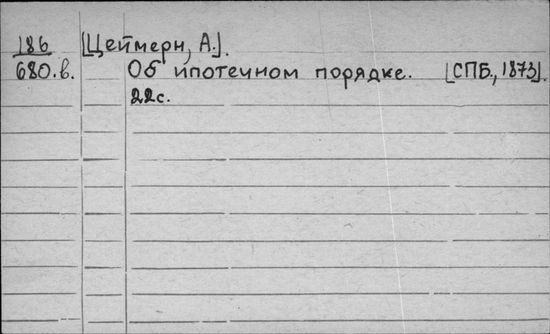 186 [Цеймерн, А.].
680.в. Об ипотечном порядке. [СПБ., 1873].
22с.